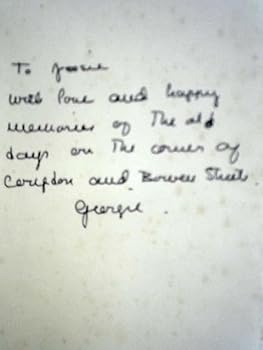 To Jessie
with love and happy
memories of The old
days on The corner of
and Bowen Street
Georgie